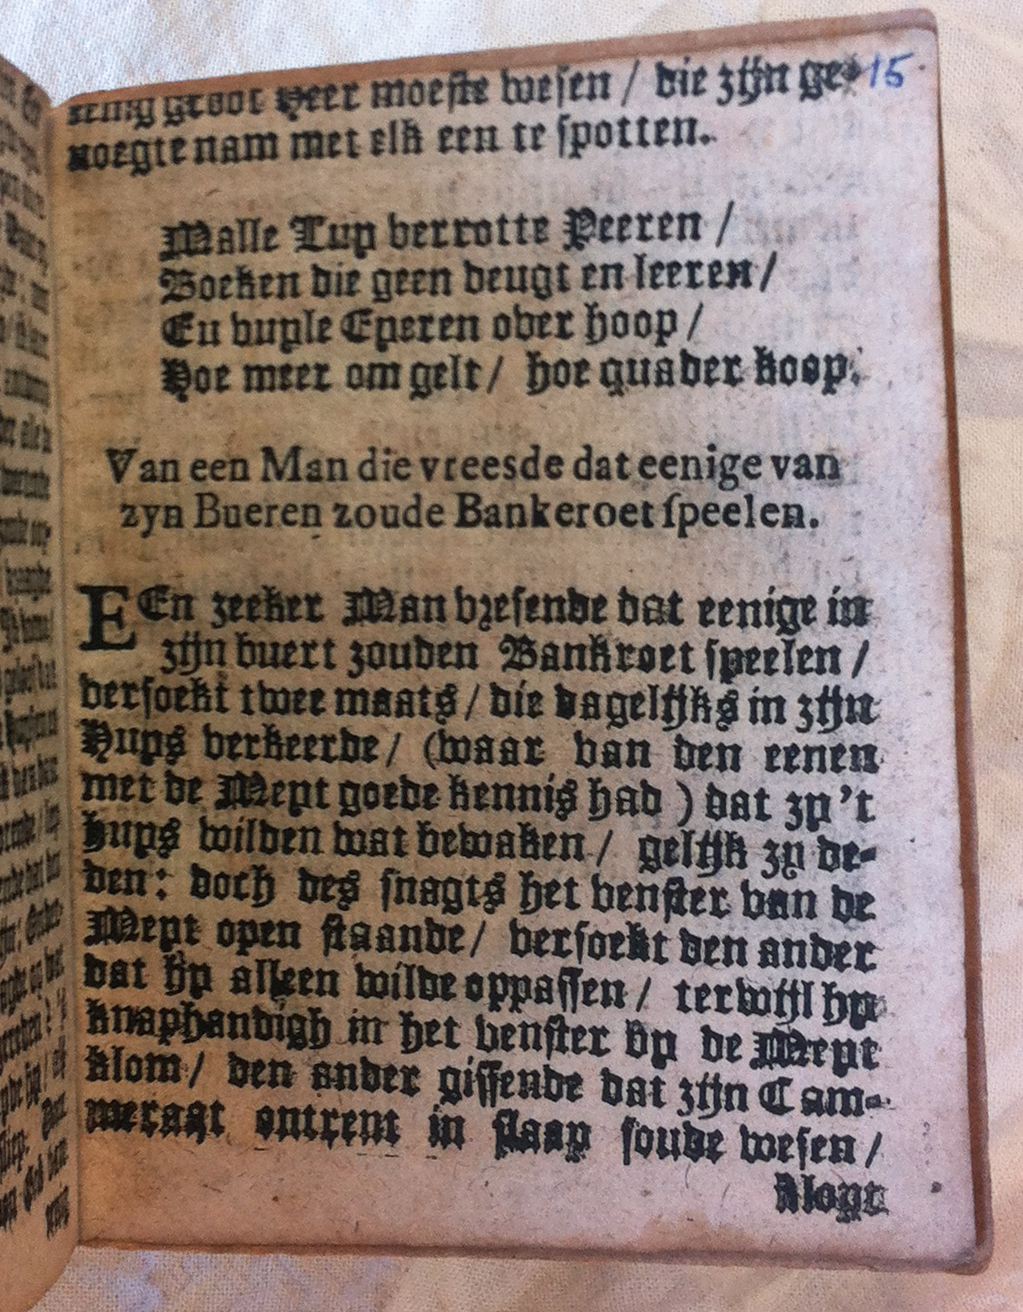 groot Heer moeste wesen / die zijn ge- 15
noegte nam met elk een te spotten.
Malle Luy verrotte Peeren /
Boeken die geen deugt en leeren /
En vuyle Eyeren over hoop /
Hoe meer om gelt / hoe quader koop.
Van een Man die vreesde dat eenige van
zyn Bueren zoude Bankeroet speelen.
EEn zeeker Man vresende dat eenige in
zijn buert zouden Bankroet speelen /
versoekt twee maats / die dagelijks in zijn
Huys verkeerde / (waar van den eenen
met de Meyt goede kennis had ) dat zy 't
huys wilden wat bewaken / gelijk zy de-
den : doch des snagts het venster van de
Meyt open staande / versoekt den ander
dat hy alleen wilde oppassen / terwijl hy
knaphandigh in het venster by de Meyt
klom / den ander gissende dat zijn Cam-
meraat ontrent in slaap soude wesen /
klopt